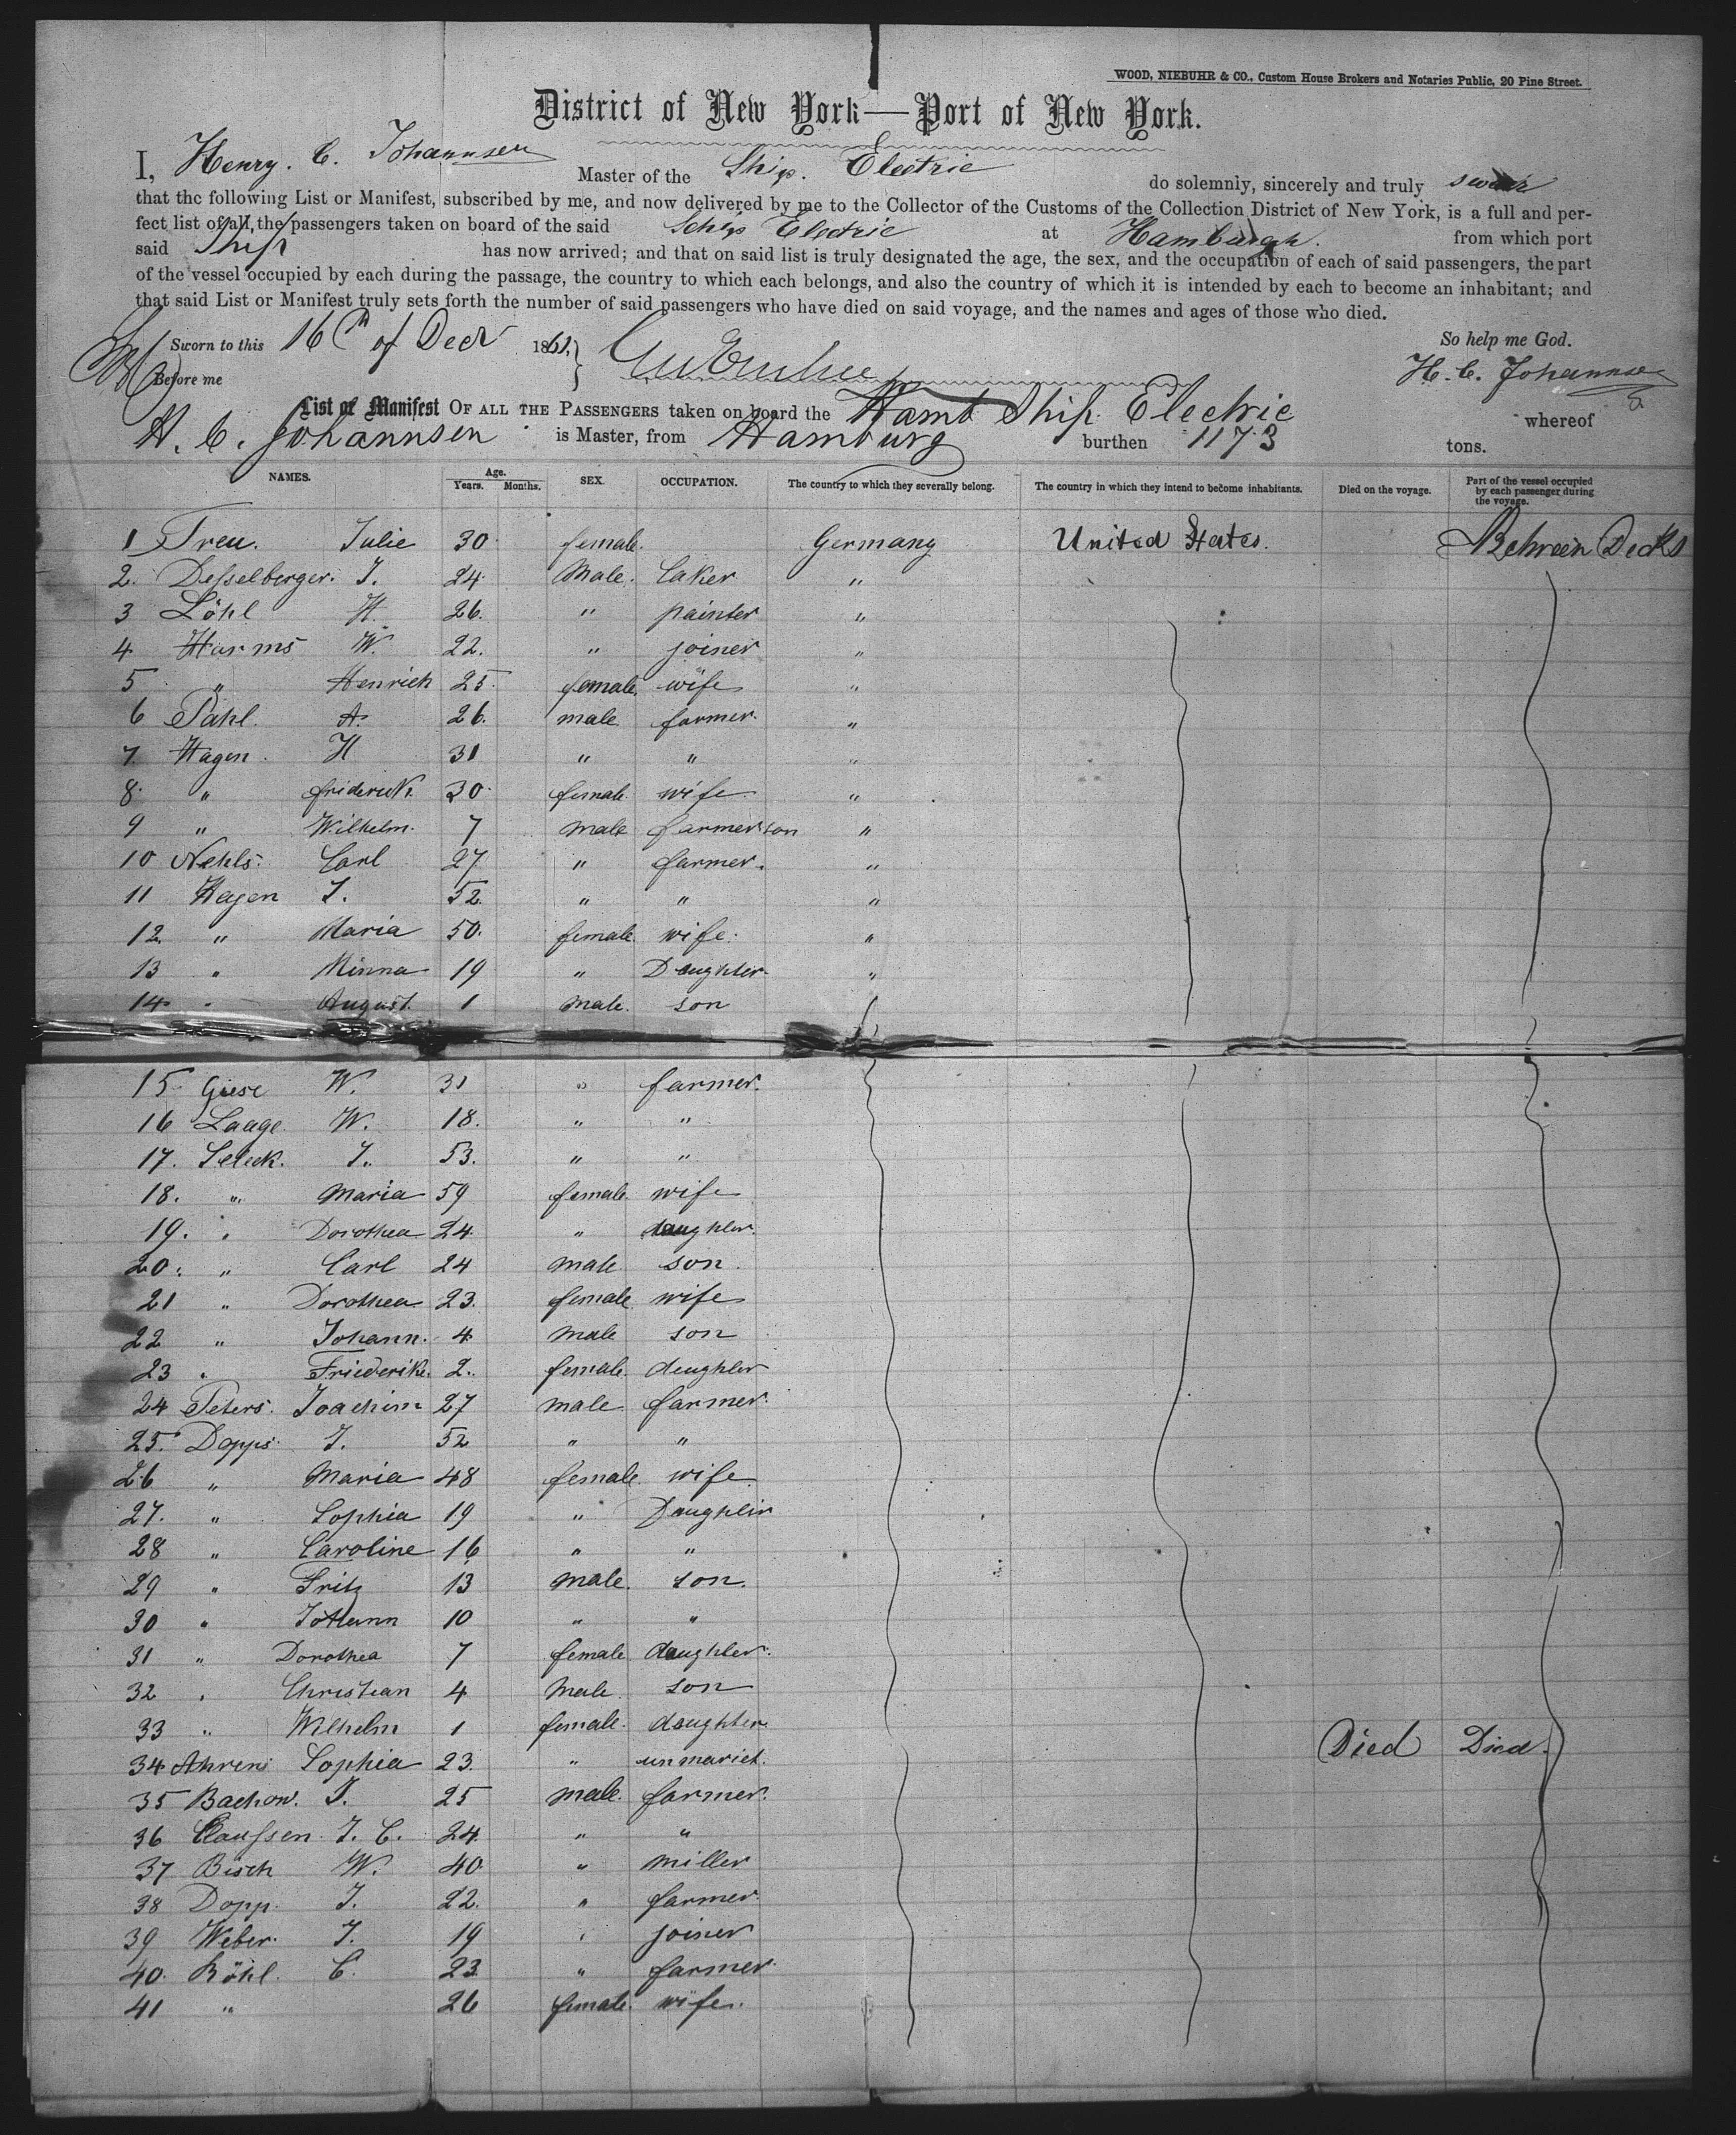 WOOD, NIEBUHR & CO., Custom House Brokers and Notaries Public, 20 Pine Street.
District of New York—Port of New York.
I, Henry. C. Johannsen Master of the Ship. Electric do solemnly, sincerely and truly swear
that the following List or Manifest, subscribed by me, and now delivered by me to the Collector of the Customs of the Collection District of New York, is a full and per-
fect list of all the passengers taken on board of the said Schip Electric at Hamburgh. from which port
said Ship has now arrived; and that on said list is truly designated the age, the sex, and the occupation of each of said passengers, the part
of the vessel occupied by each during the passage, the country to which each belongs, and also the country of which it is intended by each to become an inhabitant; and
that said List or Manifest truly sets forth the number of said passengers who have died on said voyage, and the names and ages of those who died.
Sworn to this 16th of Decr 1861. So help me God.
Before me H. C. Johannsen
List or Manifest OF ALL THE PASSENGERS taken on board the Hamb Ship Electric whereof
H. C. Johannsen is Master, from Hamburg burthen 1173 tons.
NAMES. Age. Years. Months. SEX. OCCUPATION. The country to which they severally belong. The country in which they intend to become inhabitants. Died on the voyage. Part of the vessel occupied by each passenger during the voyage.
1 Treu. Julie 30 female. Germany United States. Between Decks
2. Desselberger. J. 24 Male. baker "
3 Löhl H. 26. " painter "
4 Harms W. 22. " joiner "
5 " Henrich 25. female. wife "
6 Pahl. A. 26. male farmer. "
7. Hagen. H 31 " " "
8. " friderick. 30. female. wife "
9 " Wilhelm. 7 male farmerson "
10 Nehls. Carl 27 " farmer. "
11 Hagen J. 52. " " "
12. " Maria 50. female. wife. "
13 " Minna 19 " Daughter. "
14. " August. 1 male. son
15 Giese W. 31 " farmer.
16 Laage. W. 18. " "
17. Seleck. J. 53. " "
18. " Maria 59 female wife
19. " Dorothea 24. " daughter.
20. " Carl 24 male son.
21 " Dorothea 23. female wife
22 " Johann. 4. male son
23 " Friederike. 2. female. daughter
24 Peters. Joachim 27 male farmer.
25. Dopps. J. 52 " "
26 " Maria 48 female. wife
27. " Sophia 19 " Daughter
28 " Caroline 16 " "
29 " Fritz 13 male. son.
30 " Johann 10 " "
31 " Dorothea 7 female daughter.
32 " Christian 4 Male son
33 " Wilhelm 1 female. daughter. Died Died.
34 Ahrens Sophia 23. " unmariet.
35 Bachow. J. 25 male. farmer.
36 Claussen. J. C. 24. " "
37 Bisch W. 40. " miller
38 Dopp. J. 22. " farmer.
39 Weber. J. 19 " joiner
40. Röhl. C. 23 " farmer.
41 " 26 female. wife.